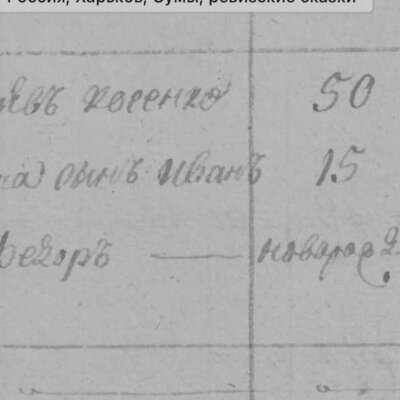 Россия, Харьков, Сумы, ревизские сказки
евъ косенко 50
на сынъ иванъ 15
Федоръ — новорож